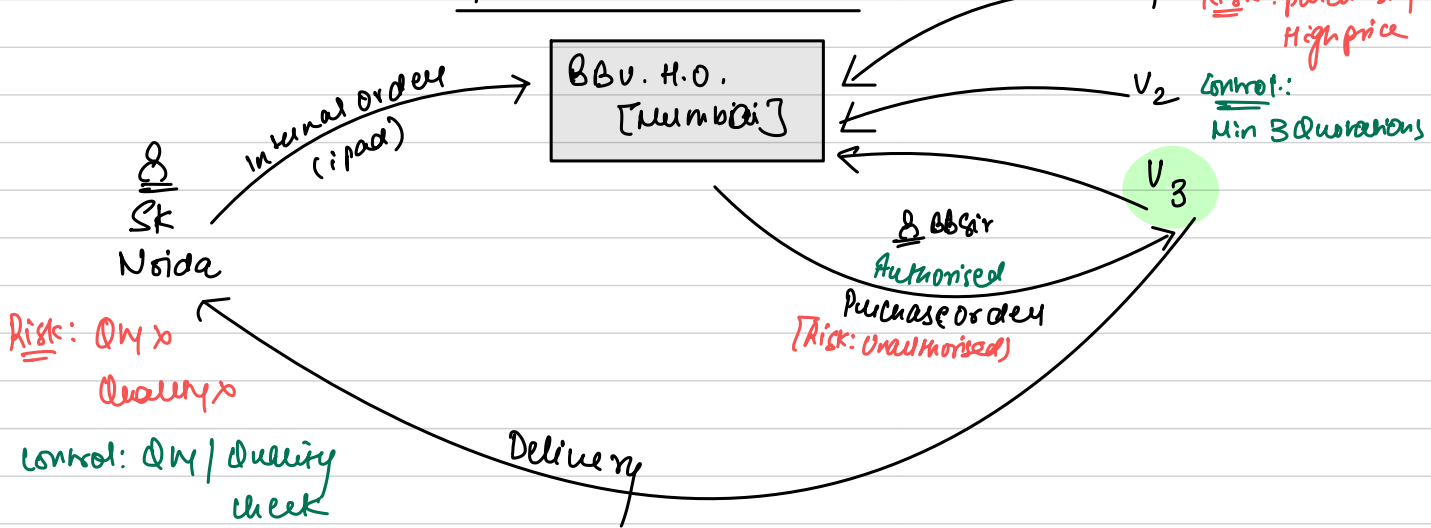 High price
BBV. H.O.
[Mumbai]
V2
Control:
Min 3 Quotations
Internal Order
(ipad)
V3
SK
Noida
BB Sir
Authorised
Purchase order
[Risk: Unauthorised]
Risk: Qty x
Quality x
Control: Qty / Quality
check
Delivery